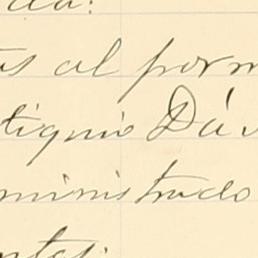 da:
as al porm
tiquio Dáv
ministrado
ntes: